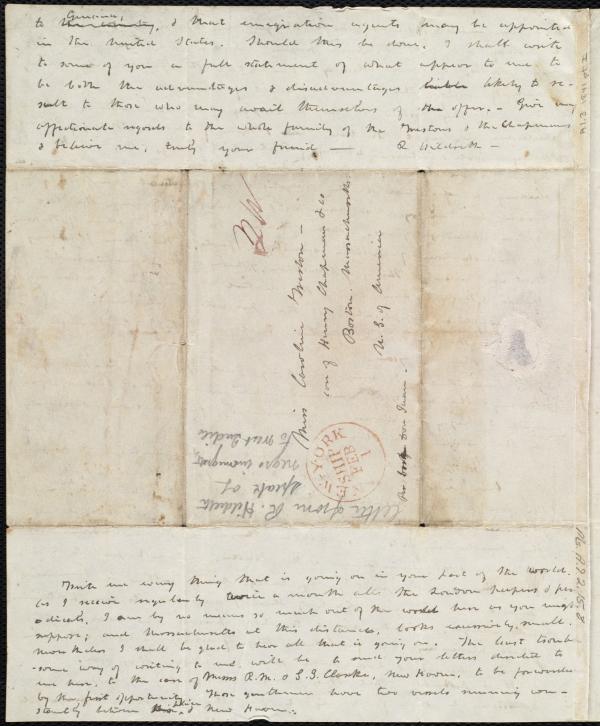 to Guiana, & that emigration agents may be appointed
in the United States. Should this be done, I shall write
to some of you a full statement of what appear to me to
be both the advantages & disadvantages likely to re-
sult to those who may avail themselves of the offer. – Give my
affectionate regards to the whole family of the Westons & the Chapmans
& believe me, truly your friend — R Hildreth –
Miss Caroline Weston –
care of Henry Chapman & co
Boston. Massachusetts
U. S. of America
Per bark Don Juan –
N-YORK
SHIP
FEB
1
Letter from R. Hildreth
speak of
negro immigrat.
to West Indies
Write me every thing that is going on in your part of the world.
As I receive regularly twice a month all the London papers & peri-
odicals, I am by no means so much out of the world here as you might
suppose; and Massachusetts at this distance, looks excessively small.
Nevertheless I shall be glad to hear all that is going on. The least trouble-
some way of writing to me will be to send your letters directed to
me here, to the care of Messrs R. M. & S. G. Clarke, New Haven, to be forwarded
by the first opportunity. Those gentlemen have two vessels running con-
stantly between & New Haven.
Ms. A.9.2.15.8